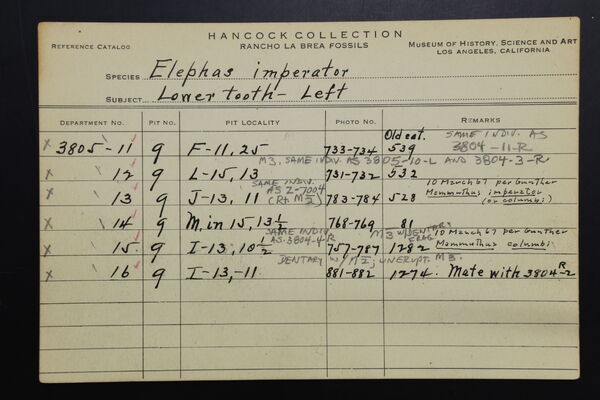 HANCOCK COLLECTION
REFERENCE CATALOG RANCHO LA BREA FOSSILS MUSEUM OF HISTORY, SCIENCE AND ART
LOS ANGELES, CALIFORNIA
SPECIES Elephas imperator
SUBJECT Lower tooth - Left
DEPARTMENT NO. PIT NO. PIT LOCALITY PHOTO NO. REMARKS
Old cat. SAME INDIV. AS
x 3805-11 9 F-11, 25 733-734 539 3804-11-R
M3, SAME INDIV AS 3805-10-L AND 3804-3-R
12 9 L-15, 13 731-732 532
SAME INDIV. 10 March 67 per Gunther
x 13 9 J-13, 11 AS Z-7004 (Rt. M2) 783-784 528 Mammuthus imperator
(or columbi)
x 14 9 M, in 15, 13 1/2 768-769 81
SAME INDIV. M3 w/DENTARY FRAG. 10 March 67 per Gunther
x 15 9 I-13, 10 1/2 AS 3804-4-R 757-787 1282 Mammuthus columbi
DENTARY w/ M2; UNERUPT. M3.
x 16 9 I-13, -11 881-882 1274. Mate with 3804 R-2